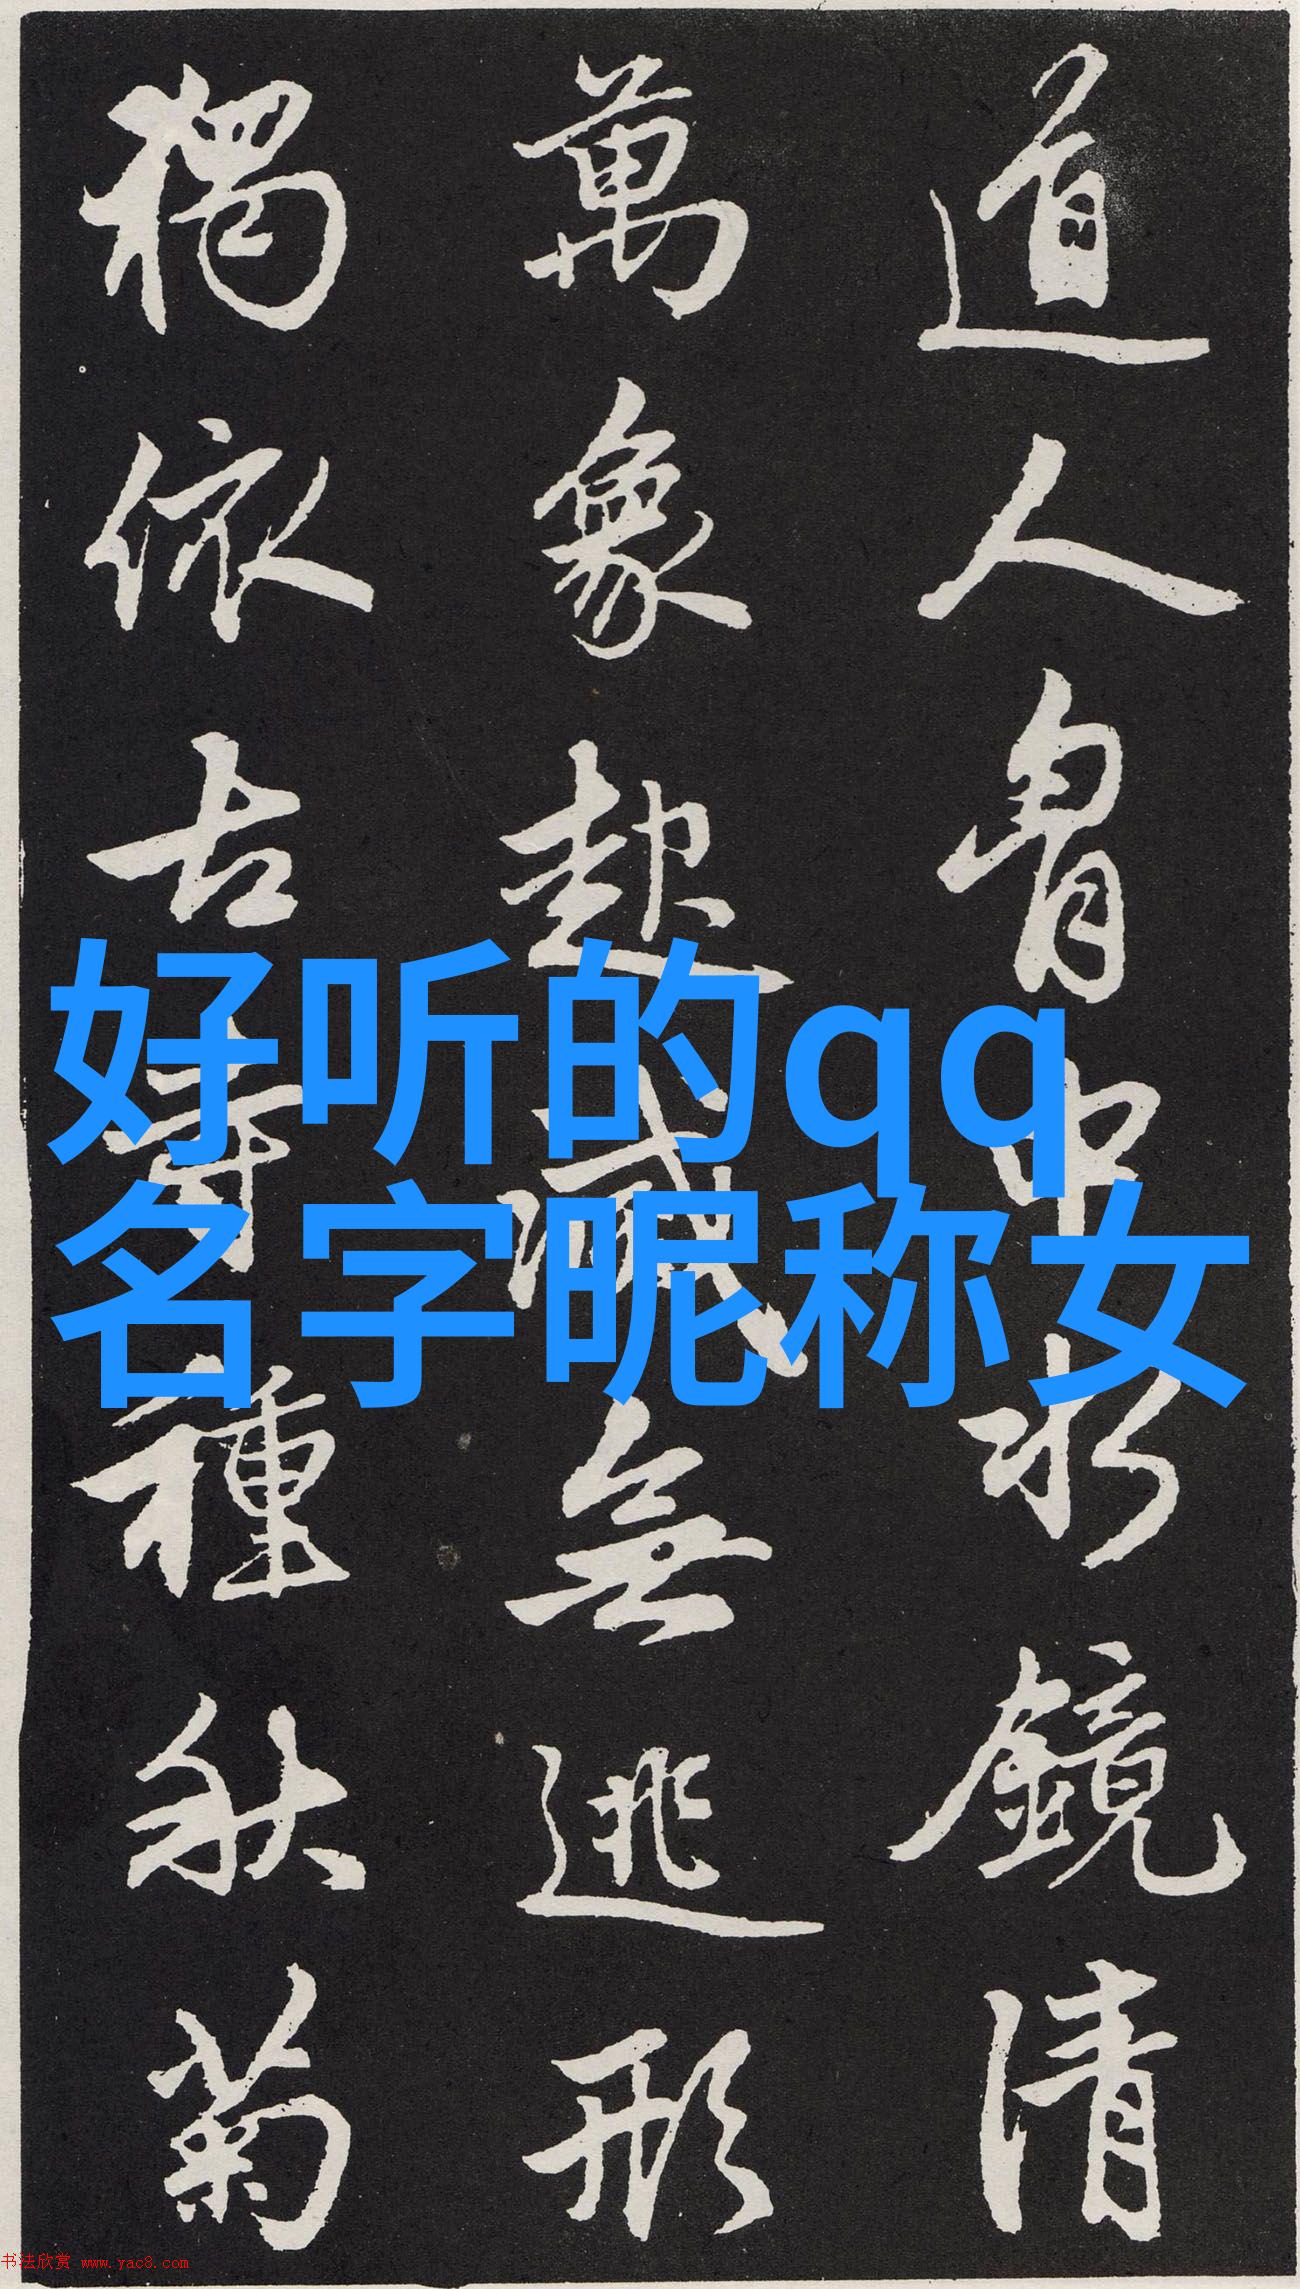 道人胷中水鏡清
萬象起滅無逃形
獨依古寺種秋菊
好听的qq
名字昵称女
书法欣赏 www.yac8.com